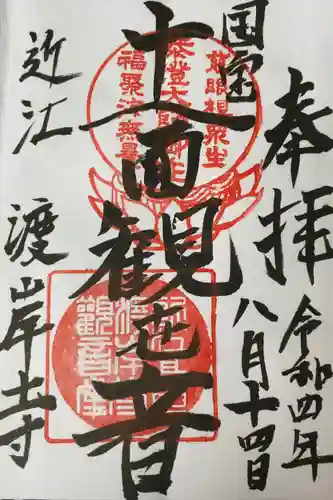 奉拝
令和四年
八月十四日
国宝
十一面観世音
慈眼視衆生
福聚海無量
近江
渡岸寺